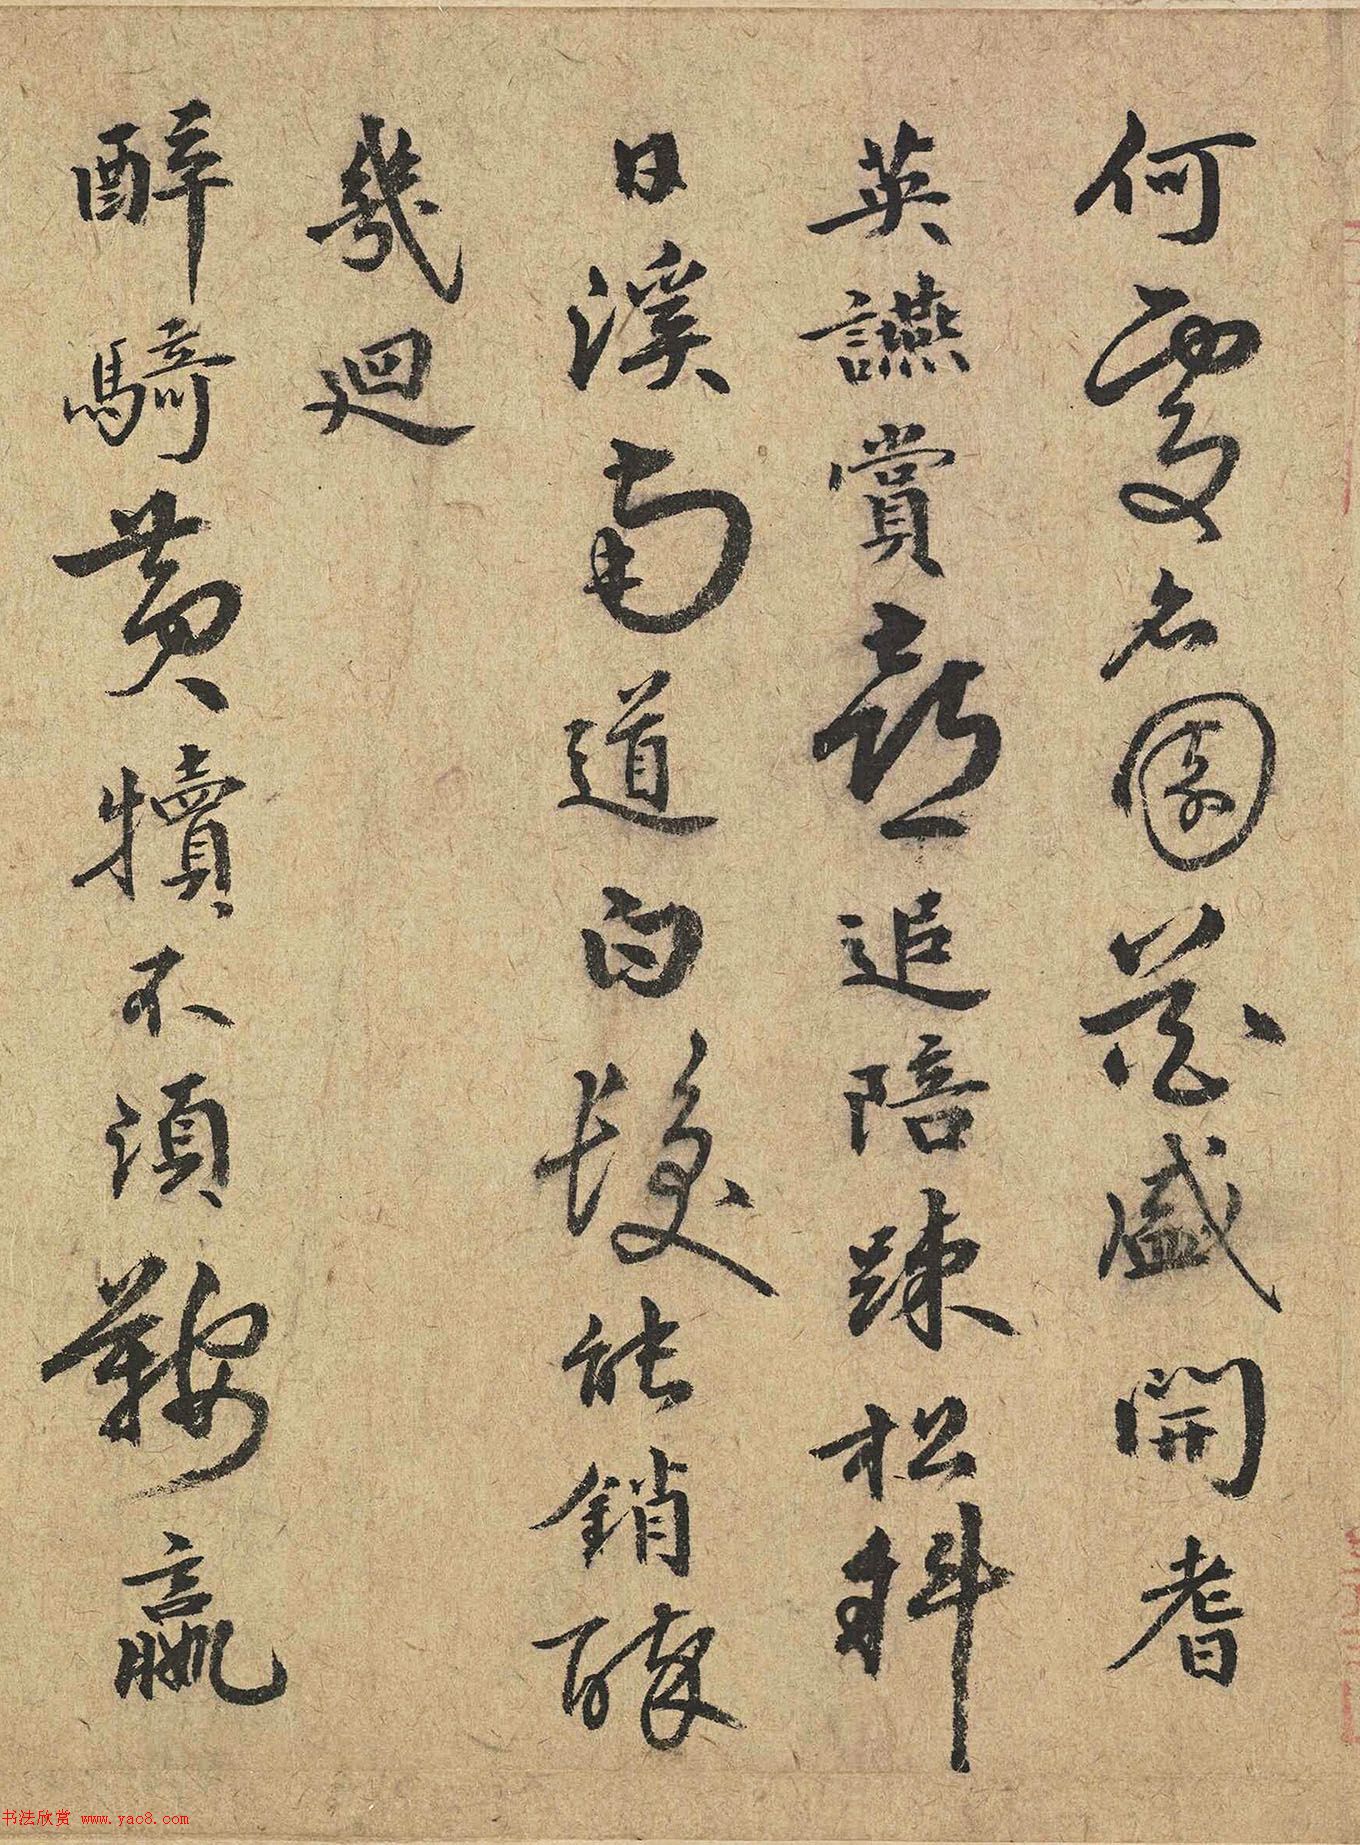 何處名園花盛開耆
英讌賞斷追陪踈松斜
日溪南道白髮能銷醉
幾迴
醉騎黃犢不須鞍嬴
书法欣赏 www.yac8.com